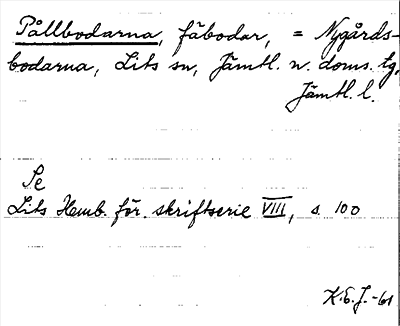 Pållbodarna, fäbodar, = Nygårds-
bodarna, Lits sn, Jämtl. n. doms. tg,
Jämtl. l.
Se
Lits Hemb. för. skriftserie VIII, s. 100
K.E.J. -61